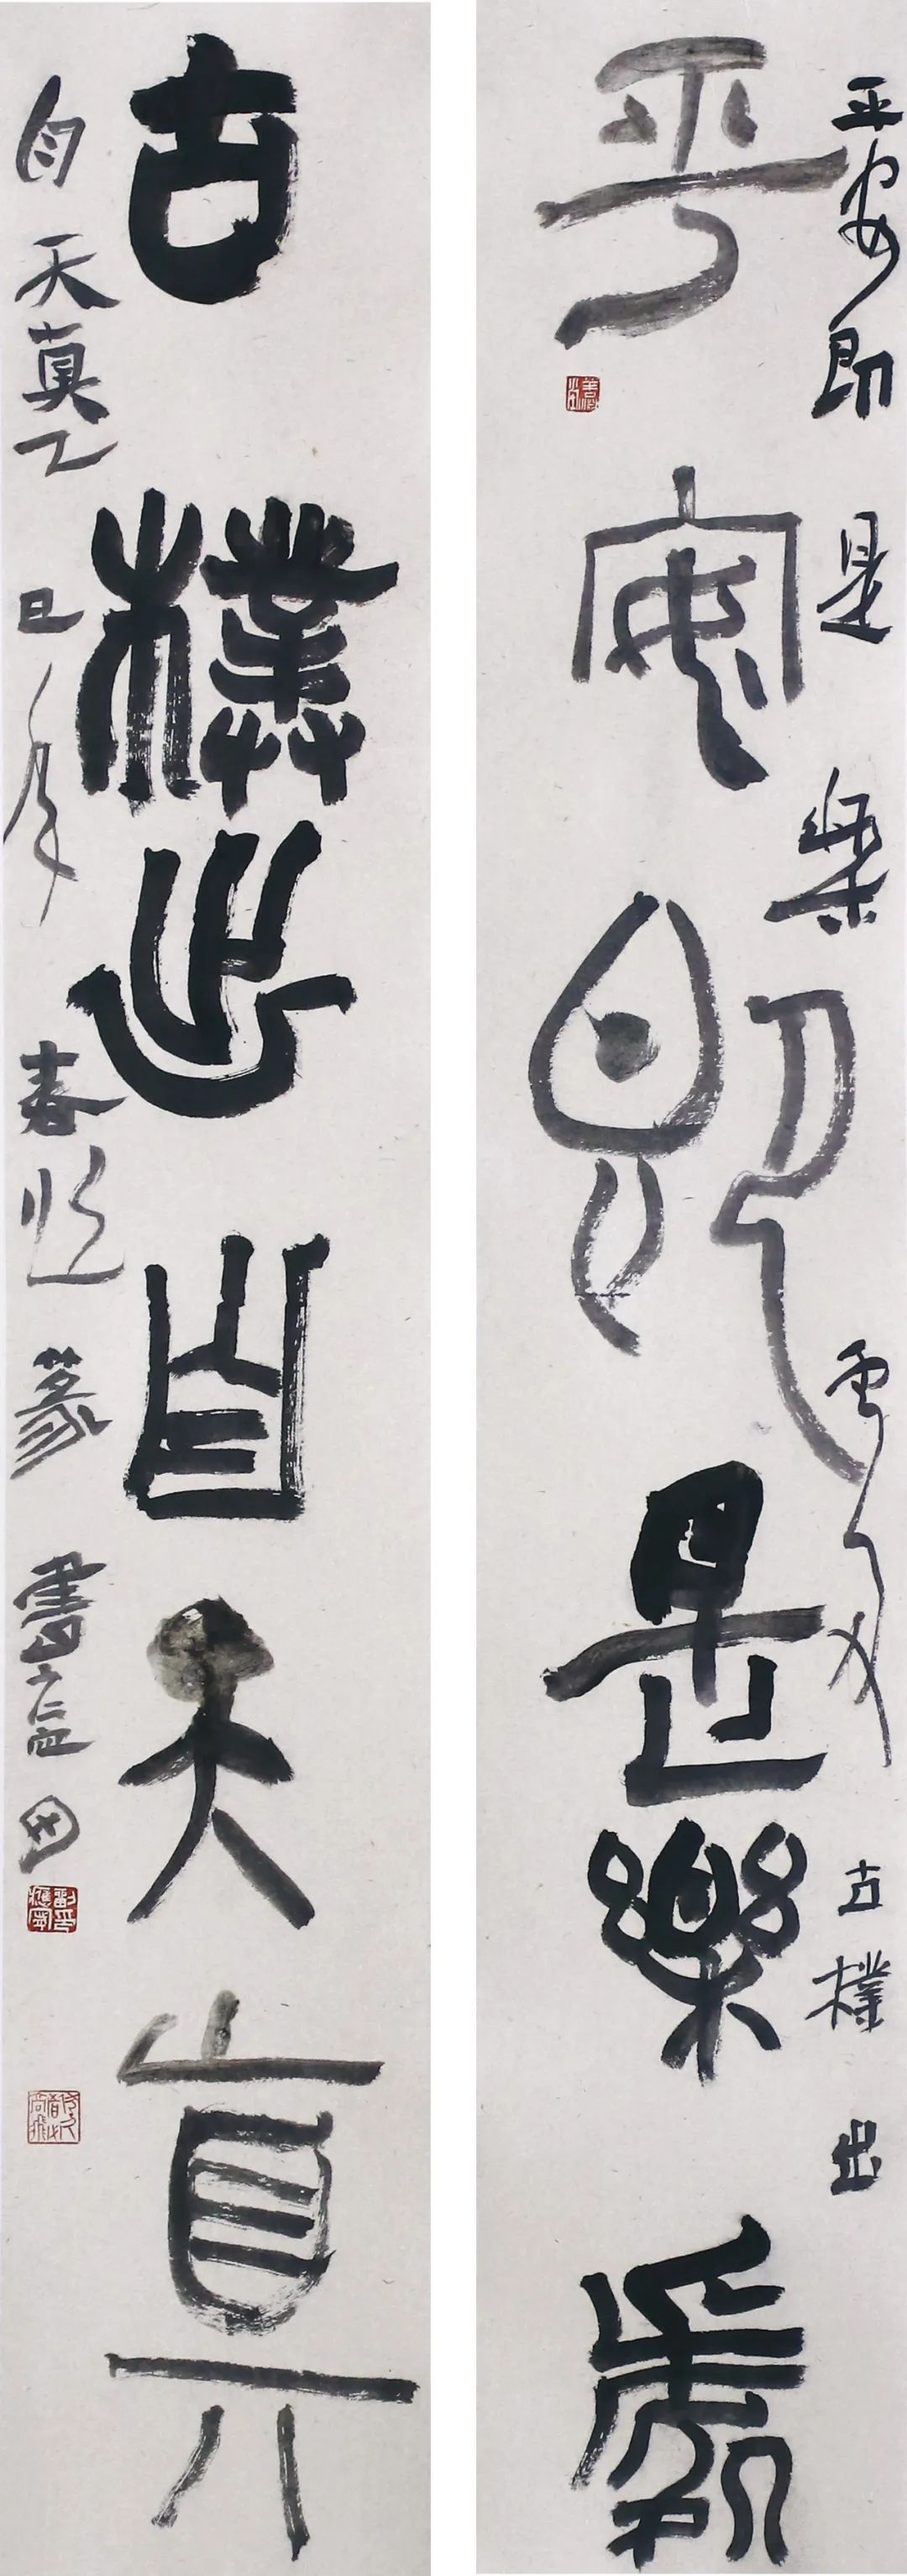 平安即是樂處古樸出
平安即是樂處
古樸出自天真
自天真乙巳年春篆書